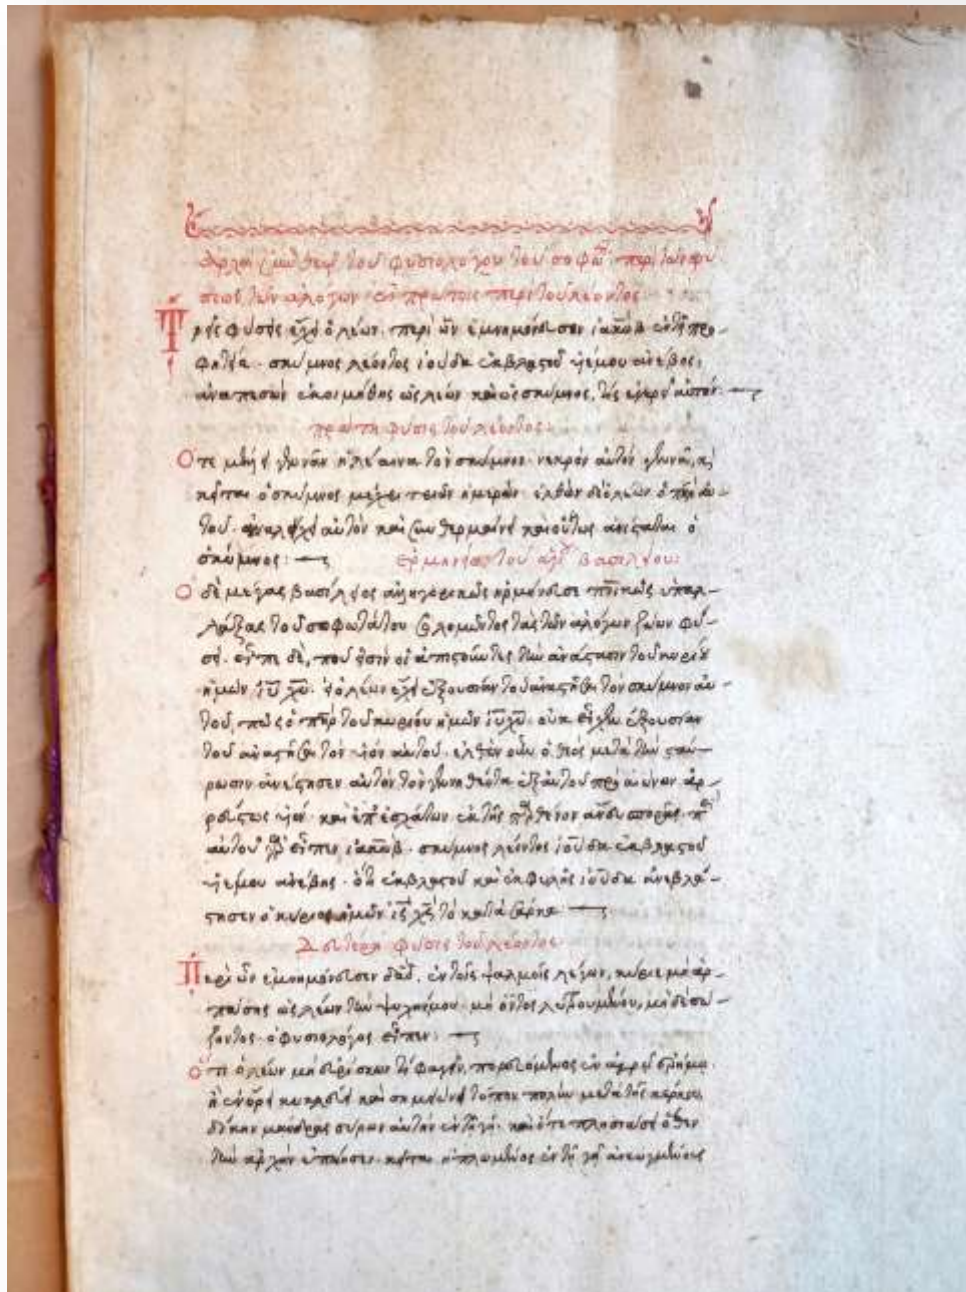 Ἀρχὴ σὺν θεῷ τοῦ φυσιολόγου τοῦ σοφοῦ περὶ τῶν φυ
σεως τῶν ἀλόγων ἐν πρώτοις περὶ τοῦ λέοντος
Τρεῖς φύσεις ἔχει ὁ λέων· περὶ ὧν ἐμνημόνευσεν ἰακὼβ ἐν τῇ προ-
φητεία· σκύμνος λέοντος ἰούδα ἐκ βλαστοῦ υἱέ μου ἀνέβης,
ἀναπεσὼν ἐκοιμήθης ὡς λέων καὶ ὡς σκύμνος, τίς ἐγερεῖ αὐτόν:
πρώτη φύσις τοῦ λέοντος:
Ὅτε γεννᾶν ἡ λέαινα τὸν σκύμνον· νεκρὸν αὐτὸν γεννᾶ, κ
κεῖται ὁ σκύμνος μέχρι τριῶν ἡμερῶν· ἐλθὼν δὲ ὁ λέων ὁ πηρ αὐ-
τοῦ· αὐτὸν καὶ συνθερμαίνει καὶ οὕτως ἀνίσταται ὁ
σκύμνος: ἑρμηνεία τοῦ ἁγίου βασιλείου:
Ὁ δὲ μέγας βασίλειος ἀλληγορικῶς ἑρμήνευσε
τοῦ σοφωτάτου σολομῶντος τὰς τῶν ἀλόγων ζώων φύ-
σει· εἶπε δὲ, ποῦ εἰσὶν οἱ ἀπιστοῦντες τὴν ἀνάστασιν τοῦ κυρίου
ἡμῶν ιυ χυ· ὁ λέων ἔχει ἐξουσίαν τοῦ ἀναστῆσαι τὸν σκύμνον αὐ
τοῦ, πῶς ὁ πηρ τοῦ κυρίου ἡμῶν ιυ χυ· οὐκ εἶχεν ἐξουσίαν
τοῦ ἀναστῆσαι τὸν υἱὸν αὐτοῦ· ἐλθὲν οὖν ὁ θεὸς μετὰ τὴν σταύ-
ρωσιν ἀνέστησεν αὐτὸν τὸν γεννηθέντα ἐξ αὐτοῦ πρὸ αἰώνων ἀρ-
ρεύστως υἱόν· καὶ ἐπ' ἐσχάτων ἐκ τῆς παρθένου ἄνευ σπορᾶς·
αὐτοῦ εἶπεν ἰακὼβ· σκύμνος λέοντος ἰούδα ἐκ βλαστοῦ
υἱέ μου ἀνέβης· ὅτι ἐκ βλαστοῦ καὶ ἐκ φυλῆς ἰούδα ἀνεβλά-
στησεν ὁ κύριος ἡμῶν ις χς τὸ κατὰ σάρκα:
Δευτέρα φύσις τοῦ λέοντος
Περὶ ὧν ἐμνημόνευσεν δαδ, ἐν τοῖς ψαλμοῖς λέγων, κύριε μὴ ἁρ-
πάσης ὡς λέων τὴν ψυχήν μου· μὴ ὄντος λυτρουμένου, μὴ δὲ σώ-
ζοντος· ὁ φυσιολόγος εἶπεν:
Ὅτι ὁ λέων μὴ εὑρίσκων τί φαγεῖν, πορευόμενος ἐν
ἢ ἐν ὄρει καὶ σημειώνει τόπον πολὺν μετὰ τῆς κέρκου
δίκην μάνδρας σύρων αὐτὴν ἐν τῇ γῇ· καὶ ὅτε πλησιάσει ὅθεν
τὴν ἀρχὴν ἐποίησεν· κεῖται ἡπλωμένος ἐν τῇ γῇ ἀνεωγμένος